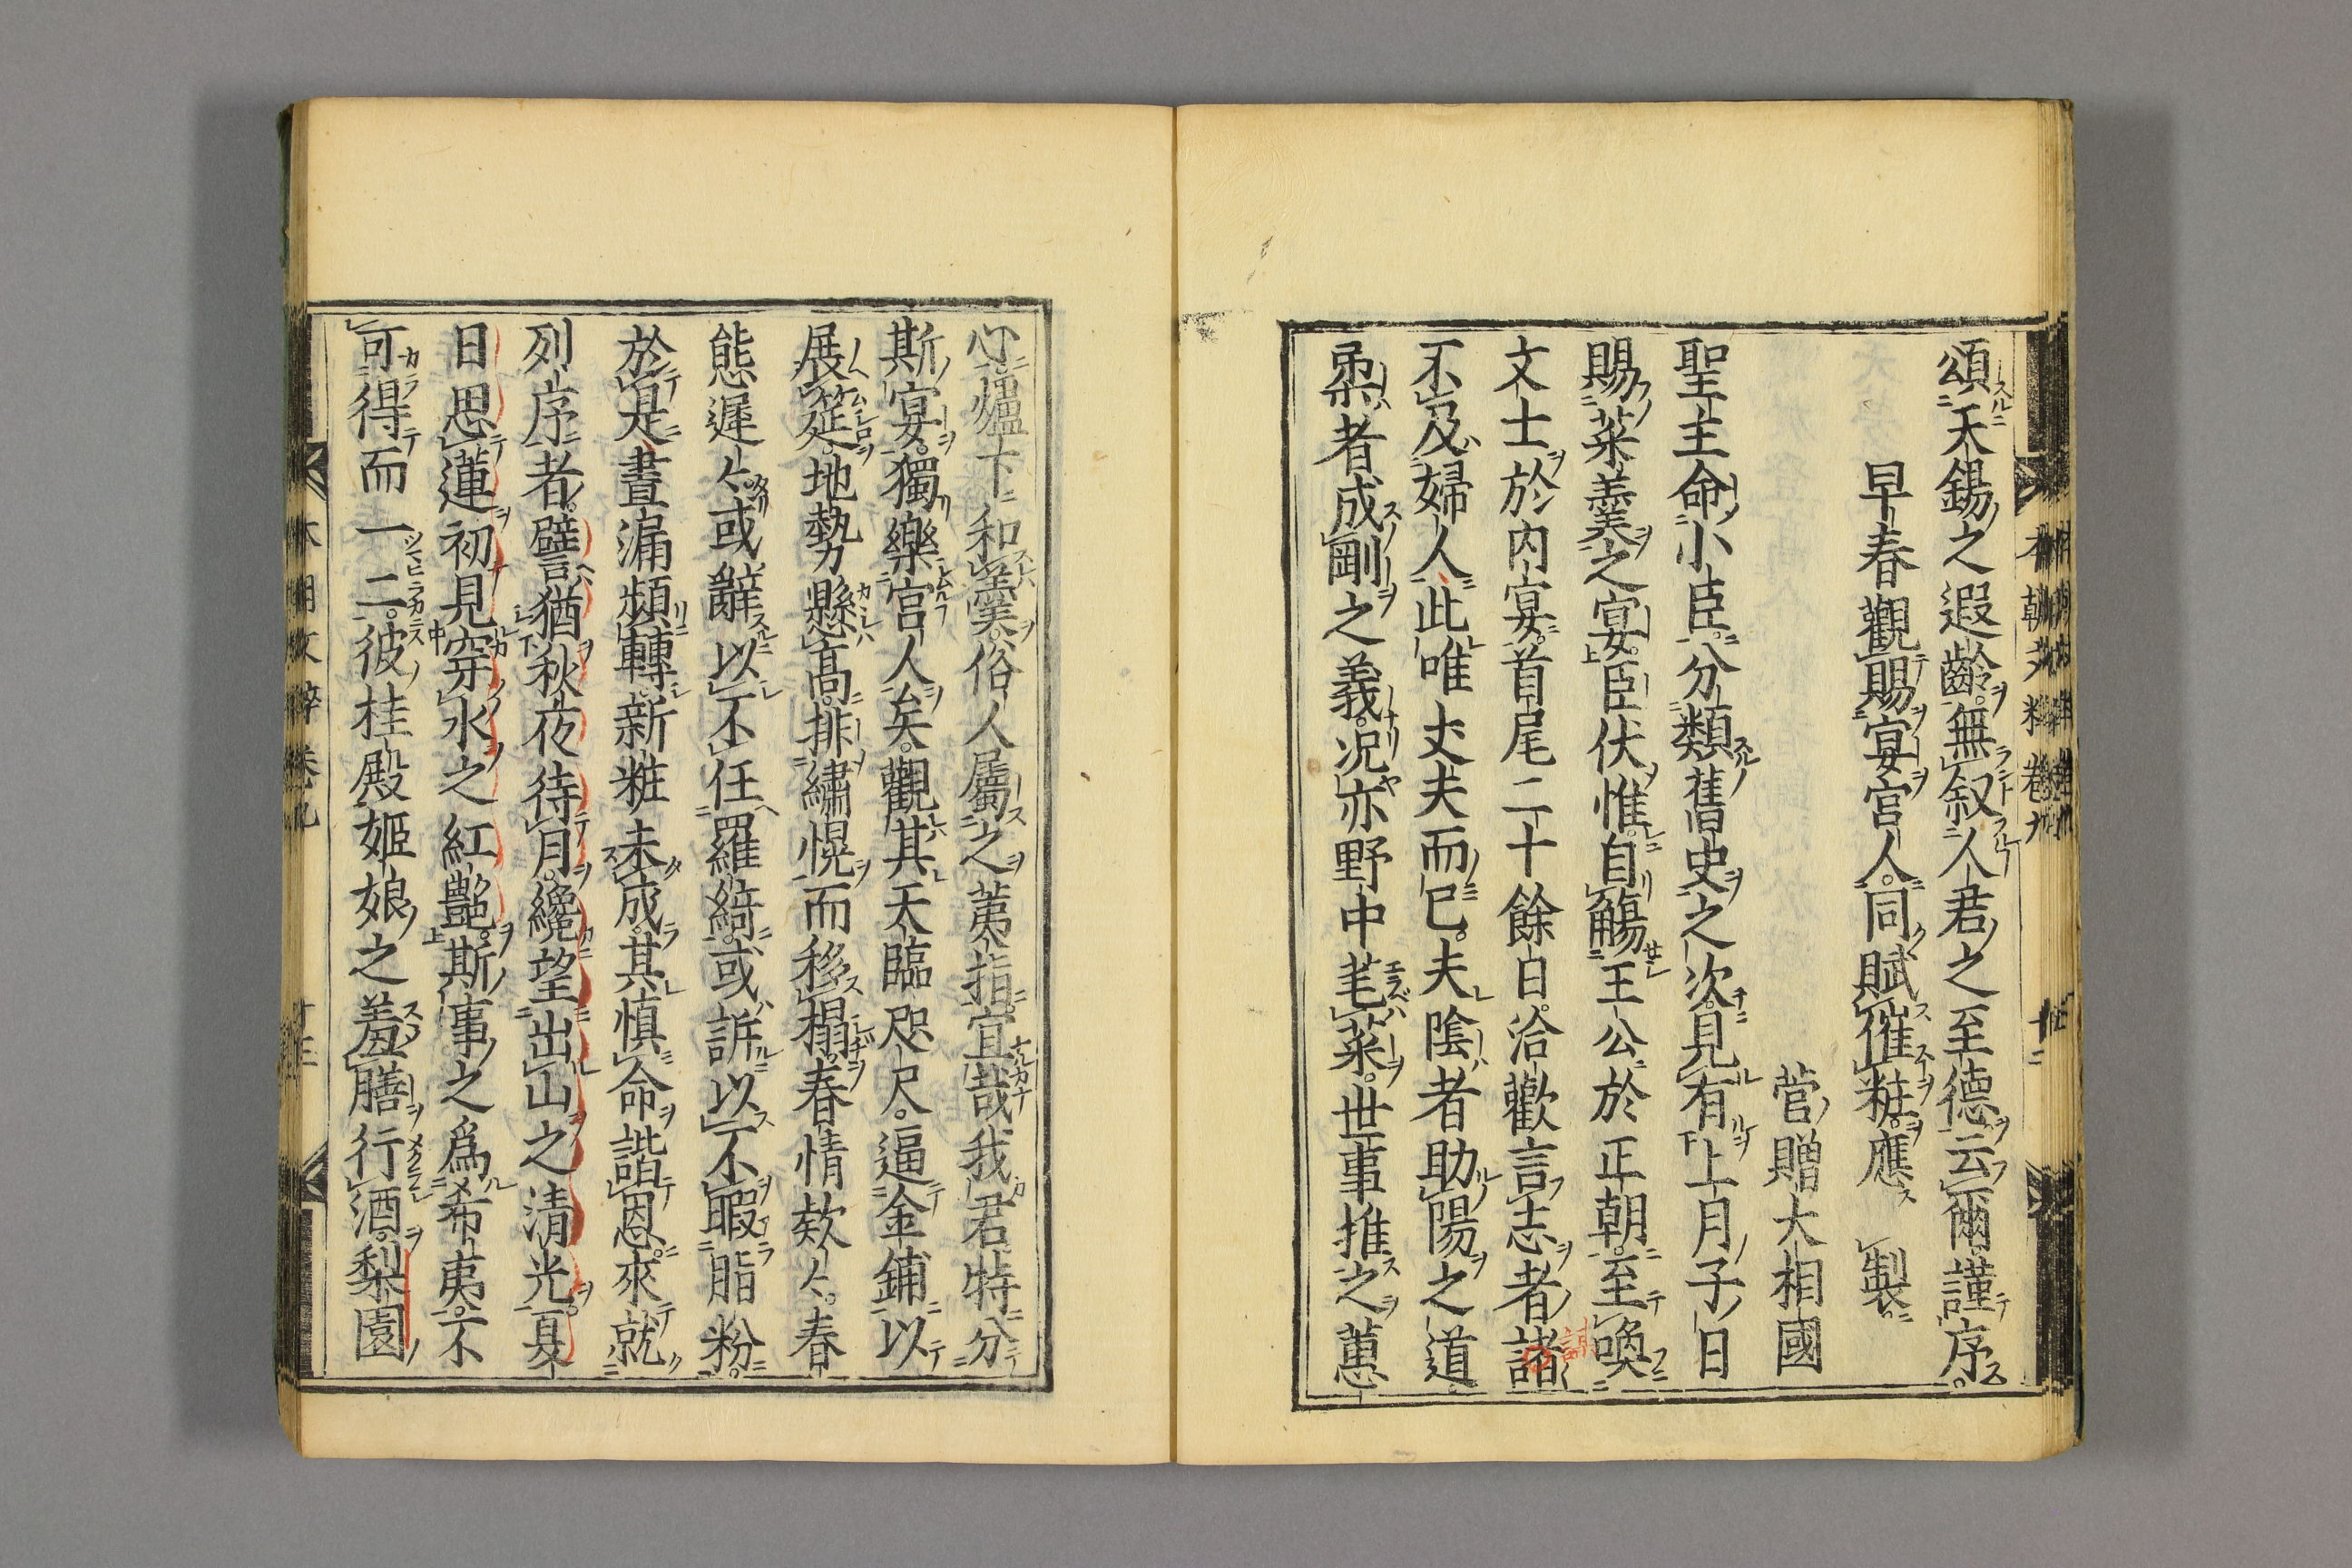 頌天錫之遐齡無叙人君之至德云爾謹序
早春觀賜宴宮人同賦催粧應　製
菅贈大相國
聖主命小臣分類舊史之次見有上月子日
賜菜羹之宴臣伏惟自觴王公於正朝至喚
文士於内宴首尾二十餘日洽歡言志者諸
不及婦人此唯丈夫而已夫陰者助陽之道
柔者成剛之義況亦野中芼菜世事推之蕙
心爐下和羹俗人屬之荑指宜哉我君特分
斯宴獨樂宮人矣觀其天臨咫尺逼金鋪以
展筵地勢懸高排繡幌而移榻春情欵々春
態遲々或辭以不任羅綺或訴以不暇脂粉
於是晝漏頻轉新粧未成其慎命諧恩來就
列序者譬猶秋夜待月纔望出山之清光夏
日思蓮初見穿水之紅艷斯事之爲希夷不
可得而一二彼桂殿姫娘之羞膳行酒梨園
本朝文粹卷九　十二
本朝文粹卷九　十三